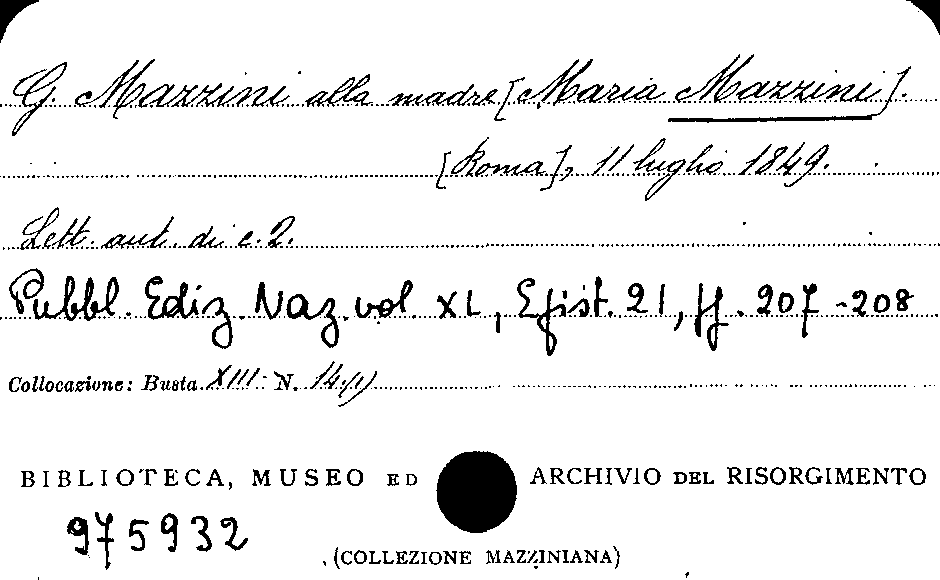 G. Mazzini alla madre [Maria Mazzini].
[Roma], 11 luglio 1849.
Lett. aut. di c. 2.
Pubbl. Ediz. Naz. vol. XL, Epist. 21, pp. 207-208
Collocazione: Busta XIII N. 14(1)
BIBLIOTECA, MUSEO ED ARCHIVIO DEL RISORGIMENTO
975932
(COLLEZIONE MAZZINIANA)